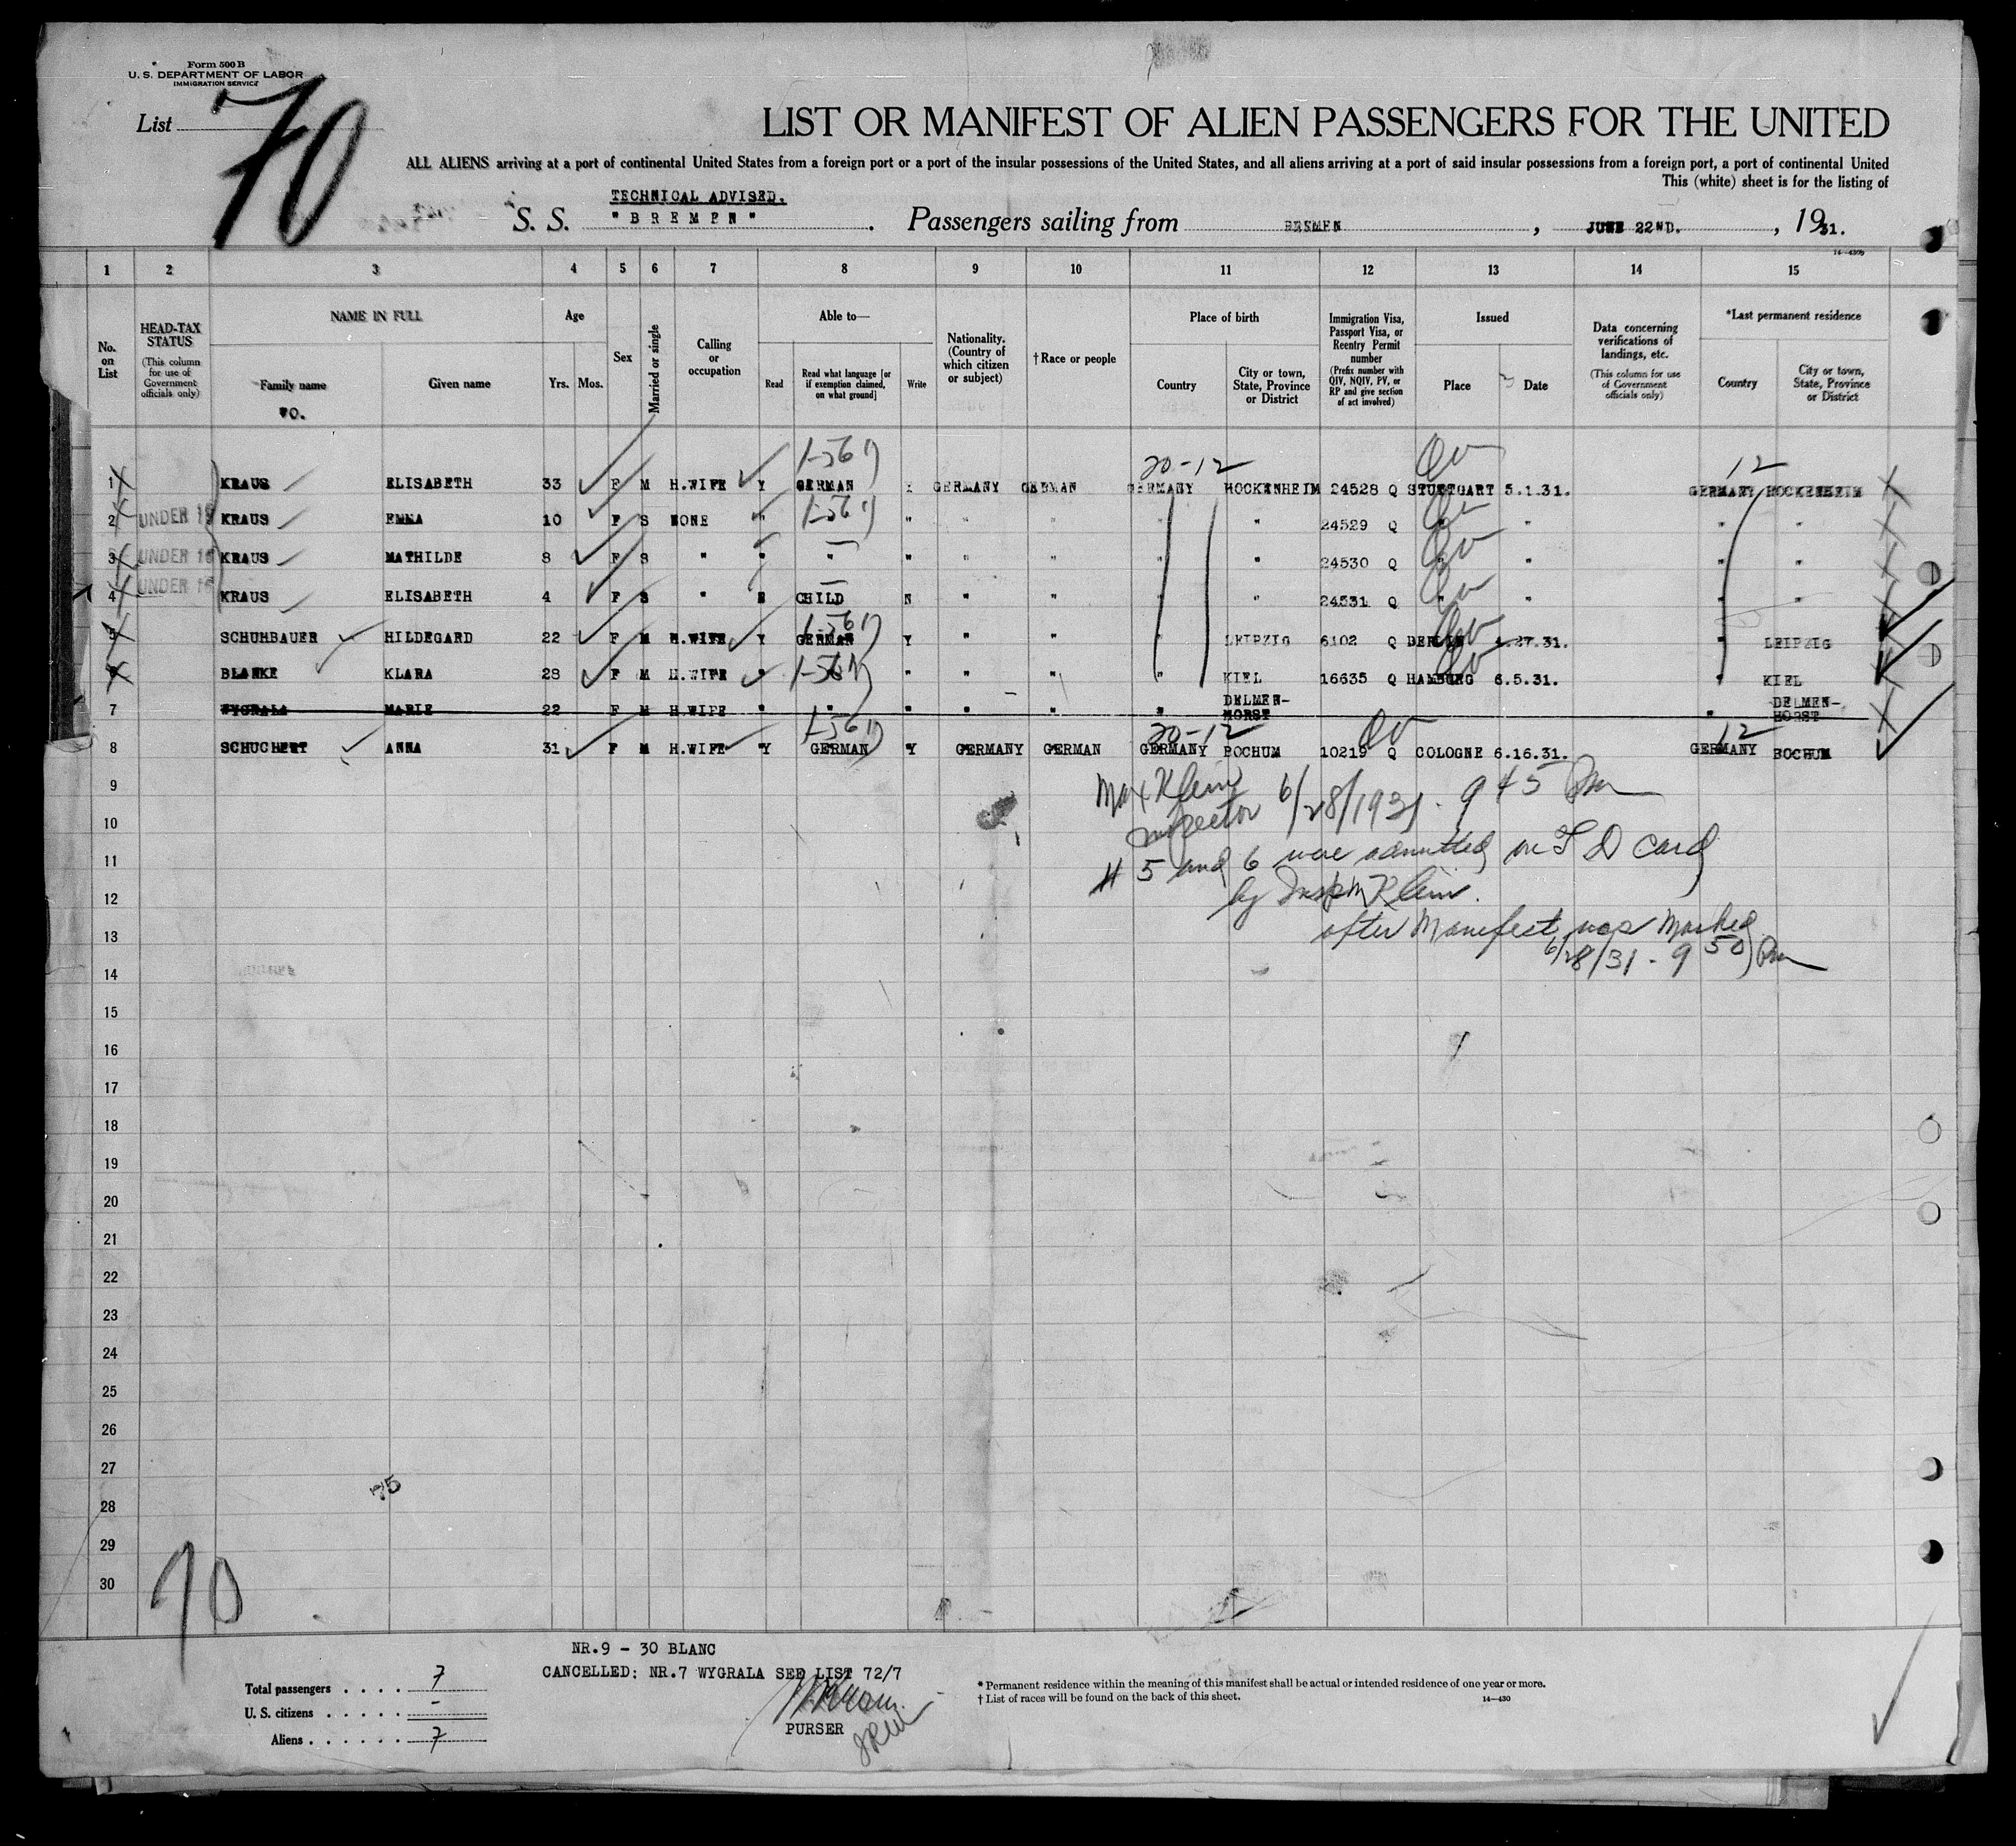 Form 500 B
U. S. DEPARTMENT OF LABOR
IMMIGRATION SERVICE
List 70
LIST OR MANIFEST OF ALIEN PASSENGERS FOR THE UNITED
ALL ALIENS arriving at a port of continental United States from a foreign port or a port of the insular possessions of the United States, and all aliens arriving at a port of said insular possessions from a foreign port, a port of continental United
This (white) sheet is for the listing of
TECHNICAL ADVISED.
S. S. "BREMEN". Passengers sailing from BREMEN, JUNE 22ND., 1931.
14—4309
1 2 3 4 5 6 7 8 9 10 11 12 13 14 15
No. on List
HEAD-TAX STATUS (This column for use of Government officials only)
NAME IN FULL
Family name
Given name
70.
Age
Yrs. Mos.
Sex
Married or single
Calling or occupation
Able to—
Read
Read what language [or if exemption claimed, on what ground]
Write
Nationality. (Country of which citizen or subject)
†Race or people
Place of birth
Country
City or town, State, Province or District
Immigration Visa, Passport Visa, or Reentry Permit number (Prefix number with QIV, NQIV, PV, or RP and give section of act involved)
Issued
Place
Date
Data concerning verifications of landings, etc. (This column for use of Government officials only)
*Last permanent residence
Country
City or town, State, Province or District
20-12 QV 12
1 KRAUS ELISABETH 33 F M H.WIFE Y GERMAN Y GERMANY GERMAN GERMANY HOCKENHEIM 24528 Q STUTTGART 5.1.31. GERMANY HOCKENHEIM
2 UNDER 16 KRAUS EMMA 10 F S NONE " " " " " " 24529 Q " " " "
3 UNDER 16 KRAUS MATHILDE 8 F S " " " " " " " " 24530 Q " " " "
4 UNDER 16 KRAUS ELISABETH 4 F S " N CHILD N " " " " 24531 Q " " " "
5 SCHUHBAUER HILDEGARD 22 F M H.WIFE Y GERMAN Y " " " LEIPZIG 6102 Q BERLIN 4.27.31. " LEIPZIG
6 BLANKE KLARA 28 F M H.WIFE " " " " " KIEL 16635 Q HAMBURG 6.5.31. " KIEL
7 WYGRALA MARIE 22 F M H.WIFE " " " " " " DELMEN-HORST " DELMEN-HORST
20-12 QV 12
8 SCHUCHERT ANNA 31 F M H.WIFE Y GERMAN Y GERMANY GERMAN GERMANY BOCHUM 10219 Q COLOGNE 6.16.31. GERMANY BOCHUM
9
Max Klein
Inspector 6/28/1931. 9 45 Pm
10
11
# 5 and 6 were admitted on I D card
12
by Insp M Klein.
13
after Manifest was Marked
6/28/31 - 9 50 Pm
14
15
16
17
18
19
20
21
22
23
24
25
26
27
75
28
29
30
70
NR.9 - 30 BLANC
CANCELLED: NR.7 WYGRALA SEE LIST 72/7
Total passengers . . . . 7
U. S. citizens . . . . . -
Aliens . . . . . . 7
PURSER
* Permanent residence within the meaning of this manifest shall be actual or intended residence of one year or more.
† List of races will be found on the back of this sheet.
14—430